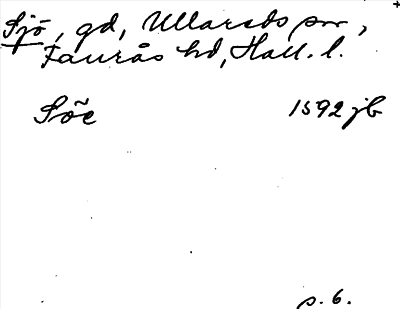 Sjö, gd, Ullareds sn,
Faurås hd, Hall. l.
Sõe 1592 jb
s. 6.